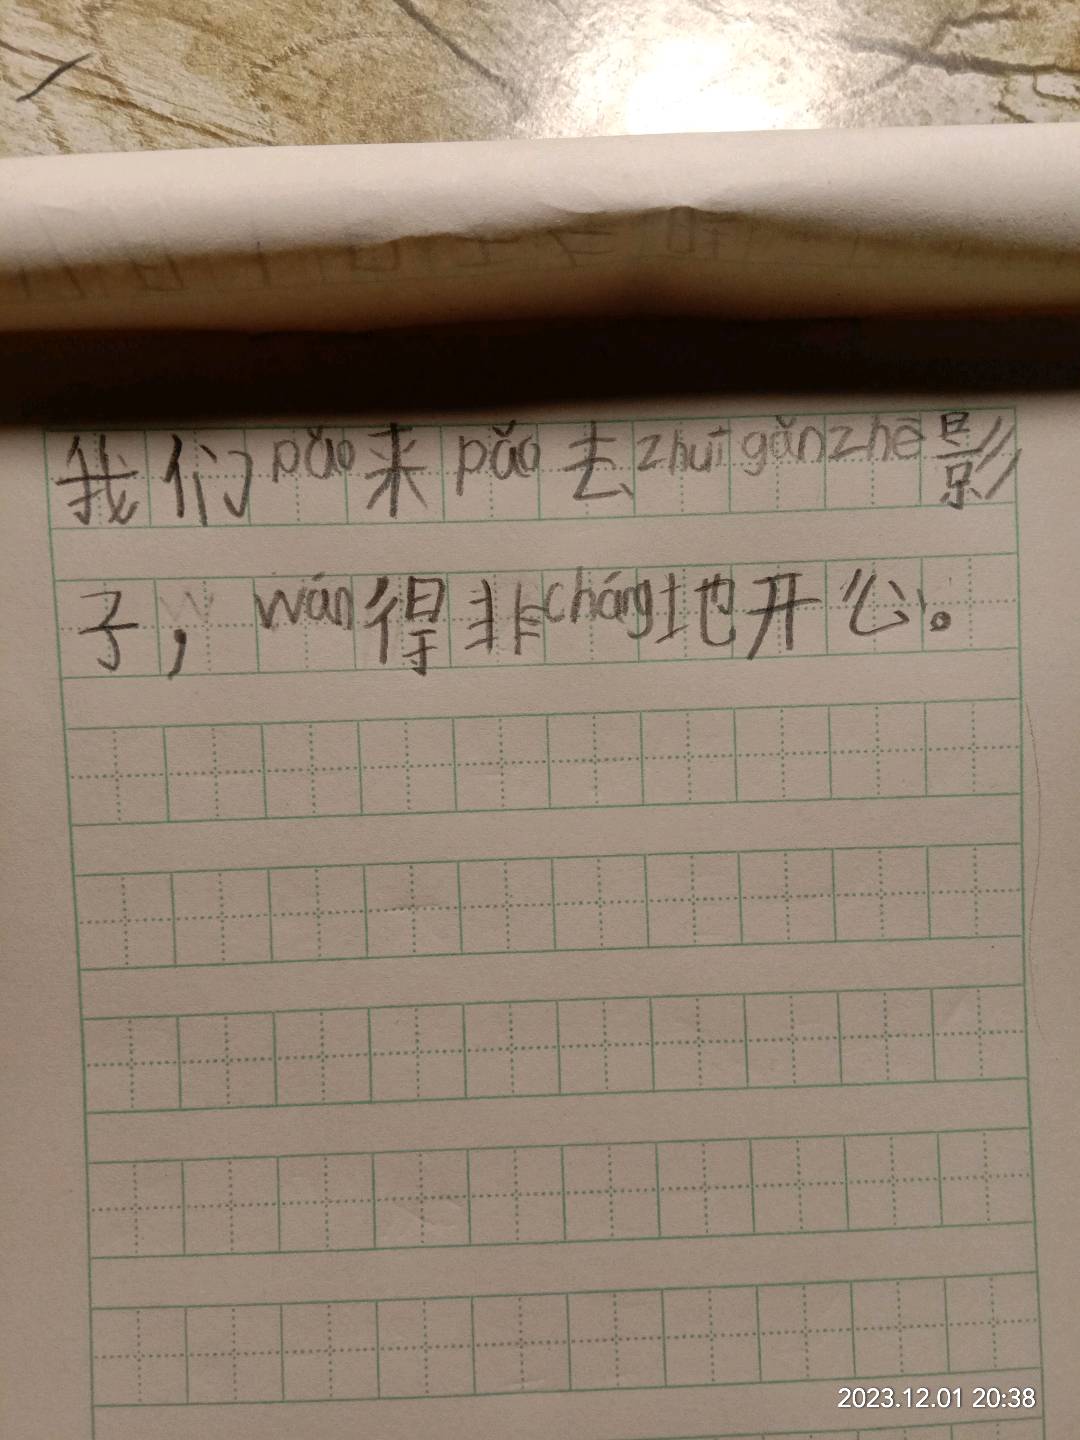 我们pǎo来pǎo去zhuī gǎn zhē影
子，wán得非cháng地开心。
2023.12.01 20:38